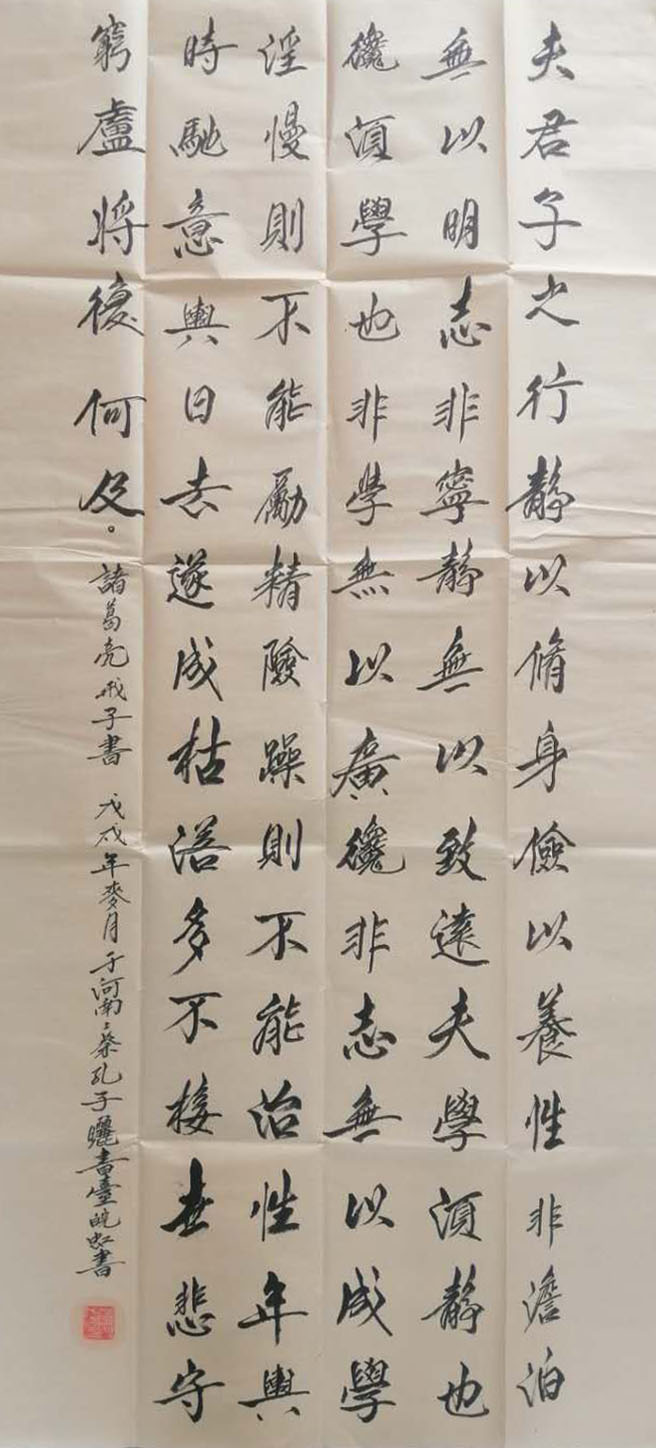 夫君子之行靜以脩身儉以養性非澹泊
無以明志非寧靜無以致遠夫學須靜也
纔須學也非學無以廣纔非志無以成學
淫慢則不能勵精險躁則不能治性年與
時馳意與日去遂成枯落多不接世悲守
窮廬將復何及。諸葛亮戒子書 戊戌年麥月于河南上蔡孔子曬書臺皖虹書